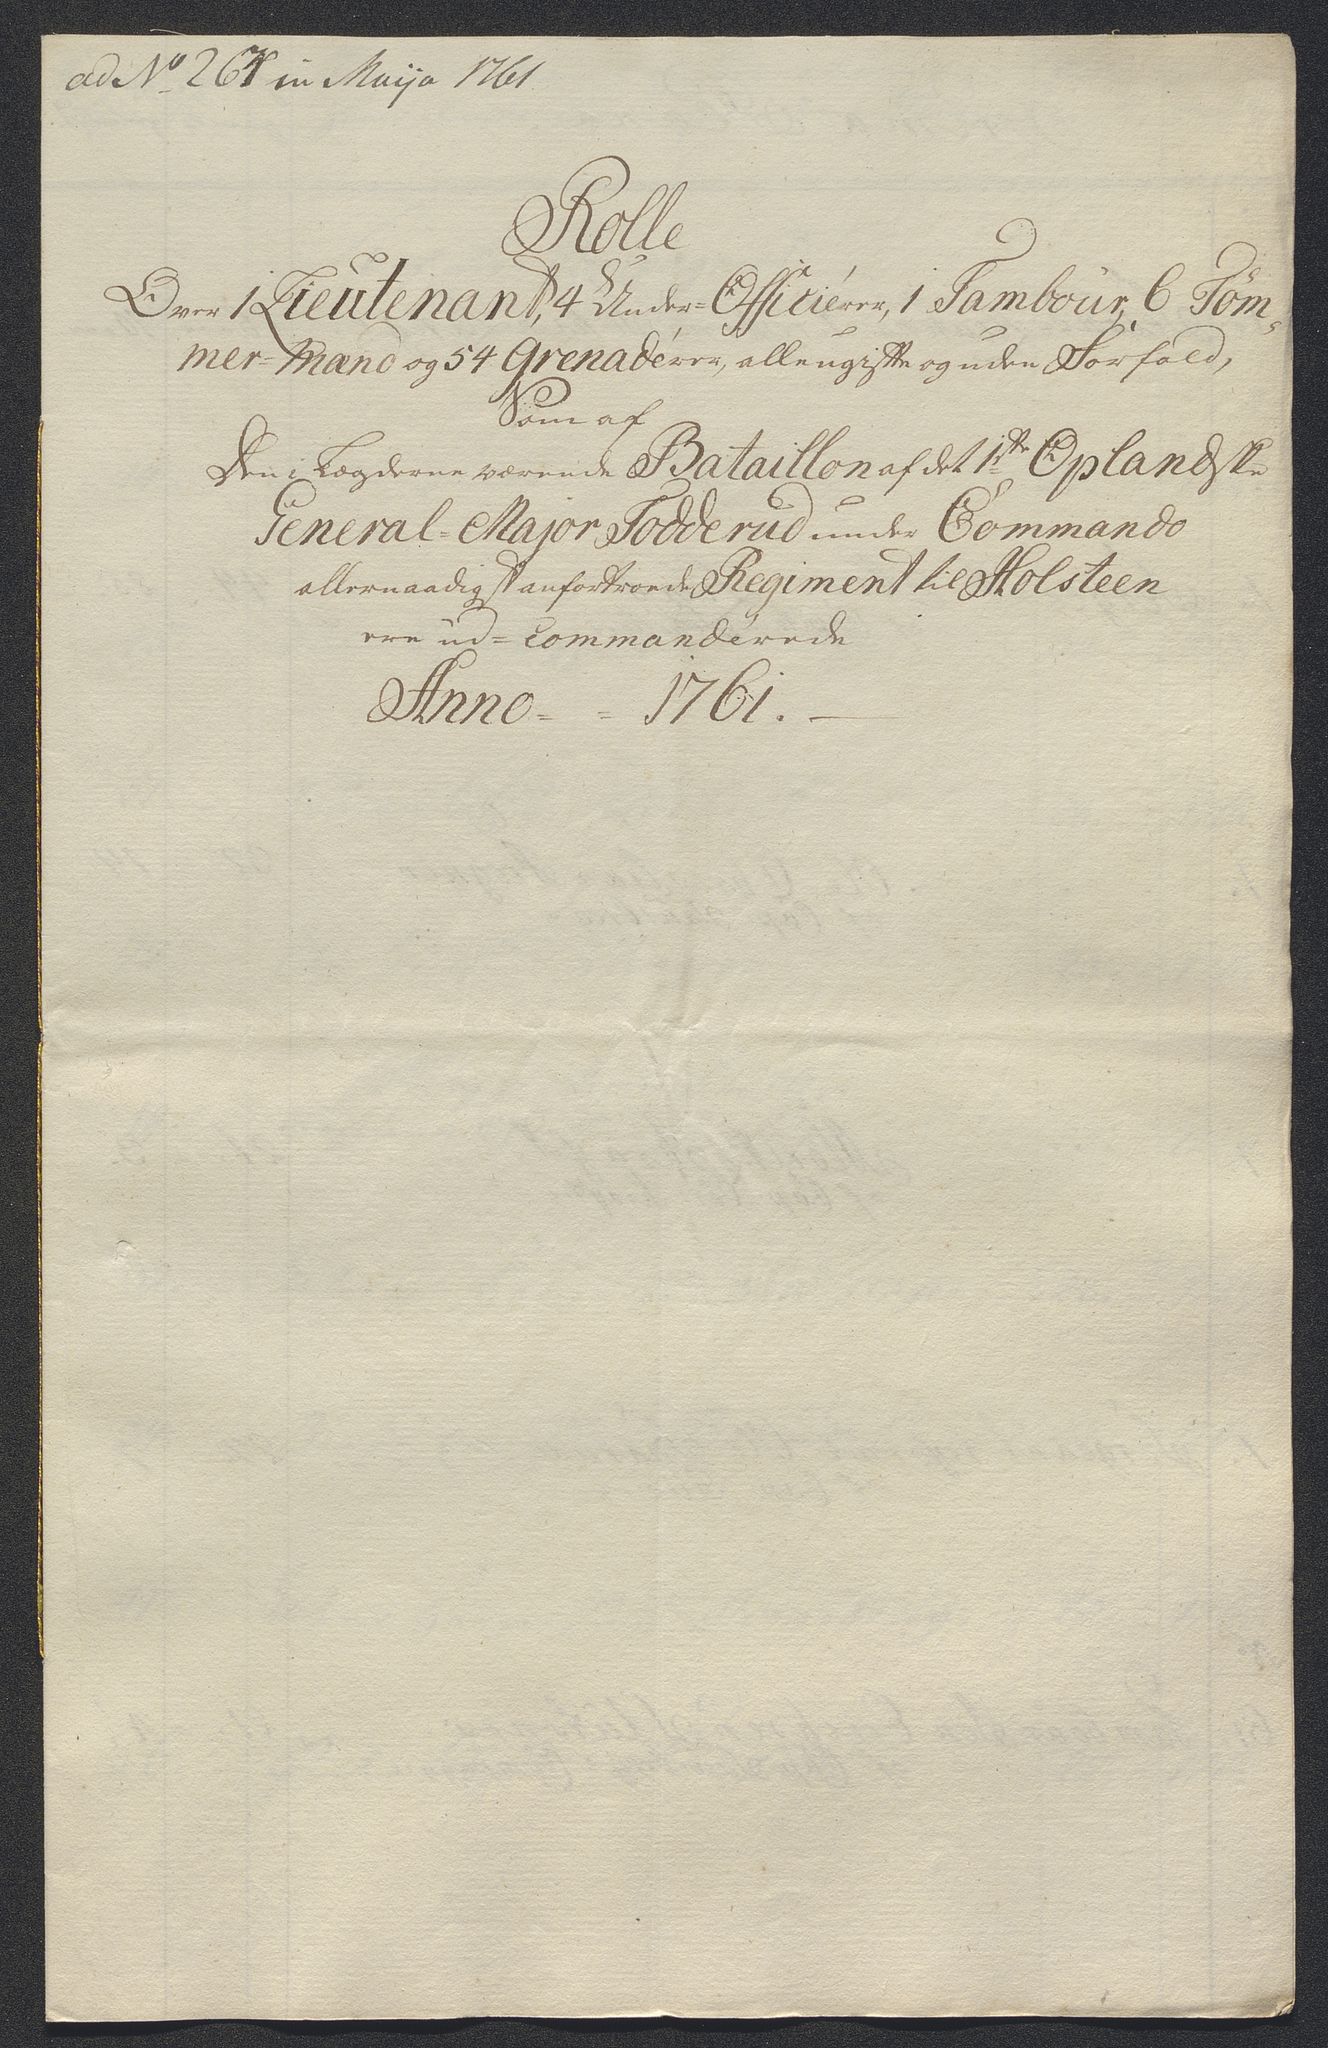 ad No 267 in Maijo 1761
Rolle
Over 1 Lieutenant, 4 Under-Officiérer, 1 Tambour, 6 Töm-
mer-Mænd og 54 Grenadérer, alle ugifte og uden Forfald,
Som af
Den i Lægderne værende Bataillon af det 1ste Oplandske
General-Major Todderud under Commando
allernaadigst anfortroede Regiment til Holsteen
ere ud-Commandérede
Anno - - 1761.